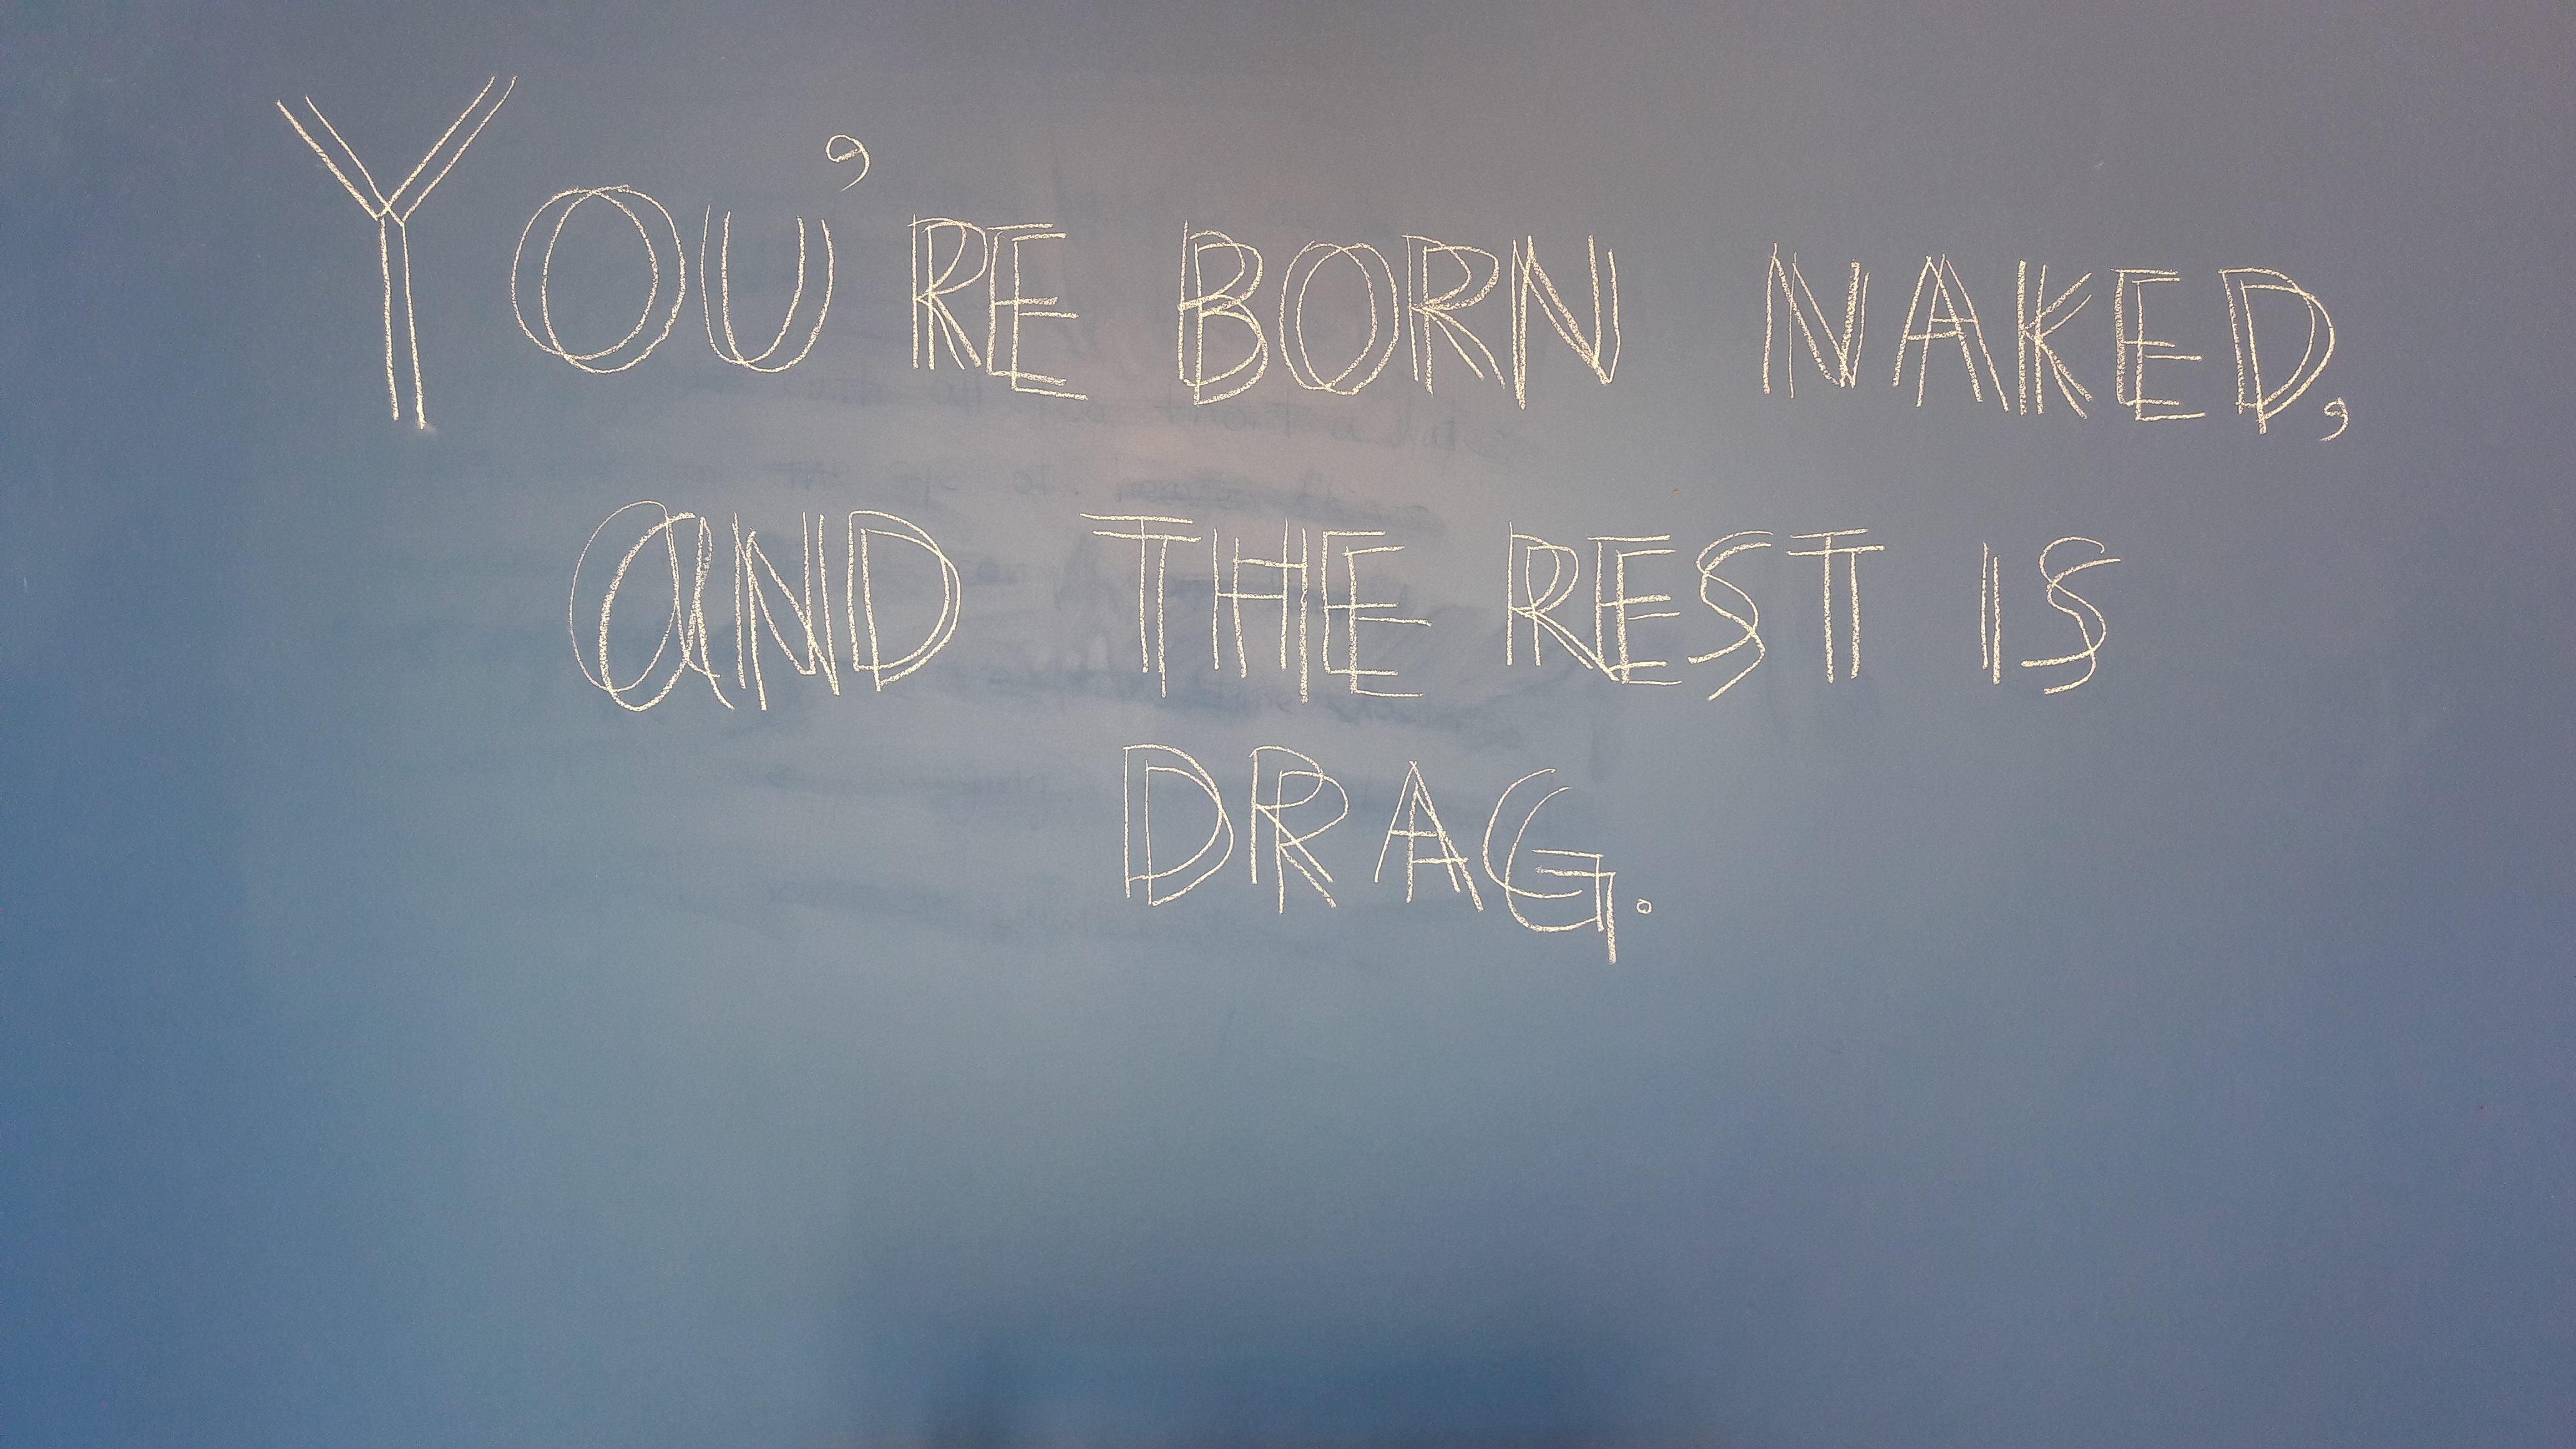 YOU'RE BORN NAKED,
AND THE REST IS
DRAG.